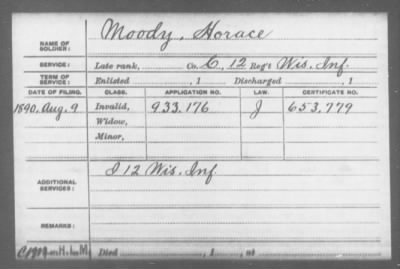 NAME OF SOLDIER: Moody, Horace
SERVICE: Late rank, Co. C, 12 Reg't Wis. Inf.
TERM OF SERVICE: Enlisted , 1 Discharged , 1
DATE OF FILING. CLASS. APPLICATION NO. LAW. CERTIFICATE NO.
1890, Aug. 9 Invalid, 933.176 J 653.779
Widow,
Minor,
ADDITIONAL SERVICES: I 12 Wis. Inf.
REMARKS:
H.L.M. Died , 1 , at